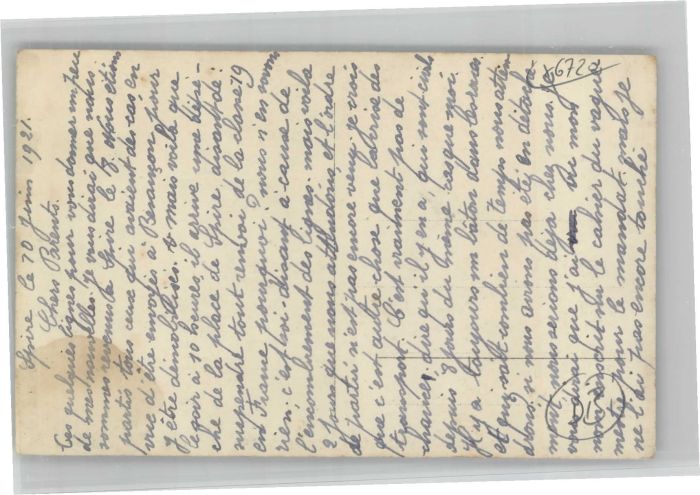 Spire le 20 Juin 1921.
Chers Parents.
Ces quelques lignes pour vous donner un peu
de mes nouvelles. je vous dirai que nous
sommes revenus à Spire le 3. et nous étions
partis tous ceux qui avaient des cas en
vue d'être envoyés à Besançon pour
y être démobilisés. mais voila que
le soir à 10 heures il arrive une dépê-
che de la place de Spire, disant de
suspendre tout renvoi de la classe 19
en France pourquoi? nous n'en savons
rien, c'est soi-disant à cause de
l'encombrement des lignes. mais voila
2 jours que nous attendons et l'ordre
de partir n'est pas encore venu, je crois
que c'est autre chose que la crise des
transport. C'est vraiment pas de
chance, dire qu'il y en a qui sont civils
depuis 8 jours du même que moi.
Il y a toujours un bâton dans les roues
et que sait combien de temps nous atten
drons. si nous avions pas été en détache
ment, nous serions déja chez nous. je
vous dirai que j'ai eu du mot
inscrit sur le cahier du vague
mestre pour le mandat. mais je
ne l'ai pas encore touché
6720